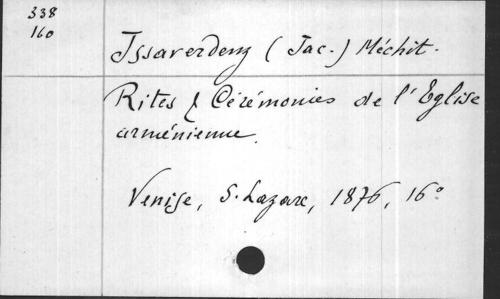 338
160
Issaverdenz (Jac.) Méchit.
Rites & Cérémonies de l'Eglise
arménienne.
Venise, S. Lazare, 1876, 16°